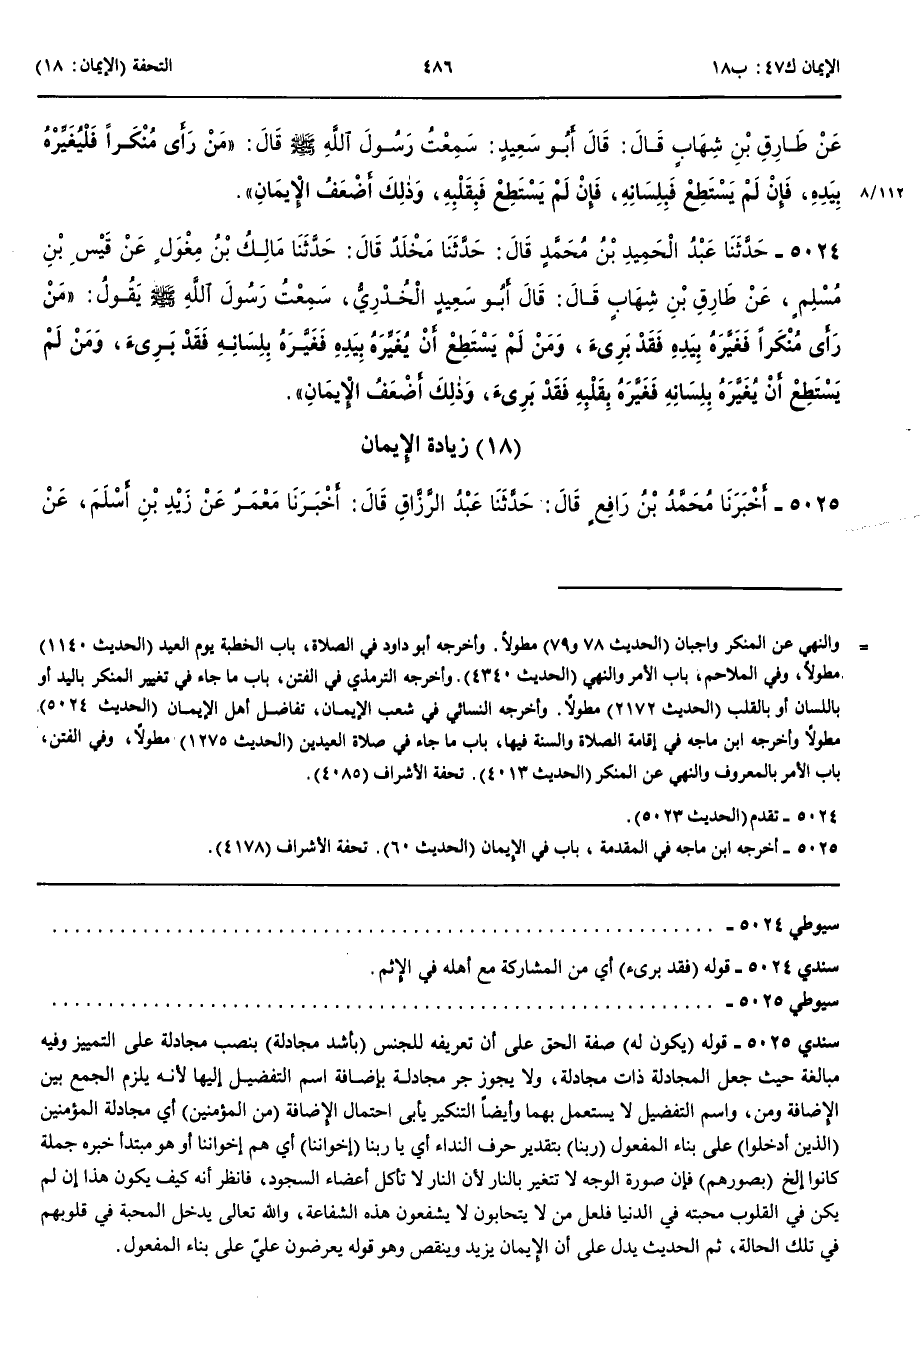 الإيمان ك٤٧: ب١٨ ٤٨٦ التحفة (الإيمان: ١٨)
عَنْ طَارِقِ بْنِ شِهَابٍ قَالَ: قَالَ أَبُو سَعِيدٍ: سَمِعْتُ رَسُولَ اللَّهِ ﷺ قَالَ: «مَنْ رَأَى مُنْكَراً فَلْيُغَيِّرْهُ
٨/١١٢ بِيَدِهِ، فَإِنْ لَمْ يَسْتَطِعْ فَبِلِسَانِهِ، فَإِنْ لَمْ يَسْتَطِعْ فَبِقَلْبِهِ، وَذٰلِكَ أَضْعَفُ الْإِيمَانِ».
٥٠٢٤ - حَدَّثَنَا عَبْدُ الْحَمِيدِ بْنُ مُحَمَّدٍ قَالَ: حَدَّثَنَا مَخْلَدٌ قَالَ: حَدَّثَنَا مَالِكُ بْنُ مِغْوَلٍ عَنْ قَيْسِ بْنِ
مُسْلِمٍ، عَنْ طَارِقِ بْنِ شِهَابٍ قَالَ: قَالَ أَبُو سَعِيدٍ الْخُدْرِيُّ، سَمِعْتُ رَسُولَ اللَّهِ ﷺ يَقُولُ: «مَنْ
رَأَى مُنْكَراً فَغَيَّرَهُ بِيَدِهِ فَقَدْ بَرِىءَ، وَمَنْ لَمْ يَسْتَطِعْ أَنْ يُغَيِّرَهُ بِيَدِهِ فَغَيَّرَهُ بِلِسَانِهِ فَقَدْ بَرِىءَ، وَمَنْ لَمْ
يَسْتَطِعْ أَنْ يُغَيِّرَهُ بِلِسَانِهِ فَغَيَّرَهُ بِقَلْبِهِ فَقَدْ بَرِىءَ، وَذٰلِكَ أَضْعَفُ الْإِيمَانِ».
(١٨) زيادة الإيمان
٥٠٢٥ - أَخْبَرَنَا مُحَمَّدُ بْنُ رَافِعٍ قَالَ: حَدَّثَنَا عَبْدُ الرَّزَّاقِ قَالَ: أَخْبَرَنَا مَعْمَرٌ عَنْ زَيْدِ بْنِ أَسْلَمَ، عَنْ
= والنهي عن المنكر واجبان (الحديث ٧٨ و٧٩) مطولاً. وأخرجه أبو داود في الصلاة، باب الخطبة يوم العيد (الحديث ١١٤٠)
مطولاً، وفي الملاحم، باب الأمر والنهي (الحديث ٤٣٤٠). وأخرجه الترمذي في الفتن، باب ما جاء في تغيير المنكر باليد أو
باللسان أو بالقلب (الحديث ٢١٧٢) مطولاً. وأخرجه النسائي في شعب الإيمان، تفاضل أهل الإيمان (الحديث ٥٠٢٤)
مطولاً وأخرجه ابن ماجه في إقامة الصلاة والسنة فيها، باب ما جاء في صلاة العيدين (الحديث ١٢٧٥) مطولاً، وفي الفتن،
باب الأمر بالمعروف والنهي عن المنكر (الحديث ٤٠١٣). تحفة الأشراف (٤٠٨٥).
٥٠٢٤ - تقدم (الحديث ٥٠٢٣).
٥٠٢٥ - أخرجه ابن ماجه في المقدمة، باب في الإيمان (الحديث ٦٠). تحفة الأشراف (٤١٧٨).
سيوطي ٥٠٢٤ - . . . . . . . . . . . . . . . . . . . . . . . . . . . . . .
سندي ٥٠٢٤ - قوله (فقد برىء) أي من المشاركة مع أهله في الإثم.
سيوطي ٥٠٢٥ - . . . . . . . . . . . . . . . . . . . . . . . . . . . . . .
سندي ٥٠٢٥ - قوله (يكون له) صفة الحق على أن تعريفه للجنس (بأشد مجادلة) بنصب مجادلة على التمييز وفيه
مبالغة حيث جعل المجادلة ذات مجادلة، ولا يجوز جر مجادلة بإضافة اسم التفضيل إليها لأنه يلزم الجمع بين
الإضافة ومن، واسم التفضيل لا يستعمل بهما وأيضاً التنكير يأبى احتمال الإضافة (من المؤمنين) أي مجادلة المؤمنين
(الذين أدخلوا) على بناء المفعول (ربنا) بتقدير حرف النداء أي يا ربنا (إخواننا) أي هم إخواننا أو هو مبتدأ خبره جملة
كانوا إلخ (بصورهم) فإن صورة الوجه لا تتغير بالنار لأن النار لا تأكل أعضاء السجود، فانظر أنه كيف يكون هذا إن لم
يكن في القلوب محبته في الدنيا فلعل من لا يتحابون لا يشفعون هذه الشفاعة، والله تعالى يدخل المحبة في قلوبهم
في تلك الحالة، ثم الحديث يدل على أن الإيمان يزيد وينقص وهو قوله يعرضون عليّ على بناء المفعول.